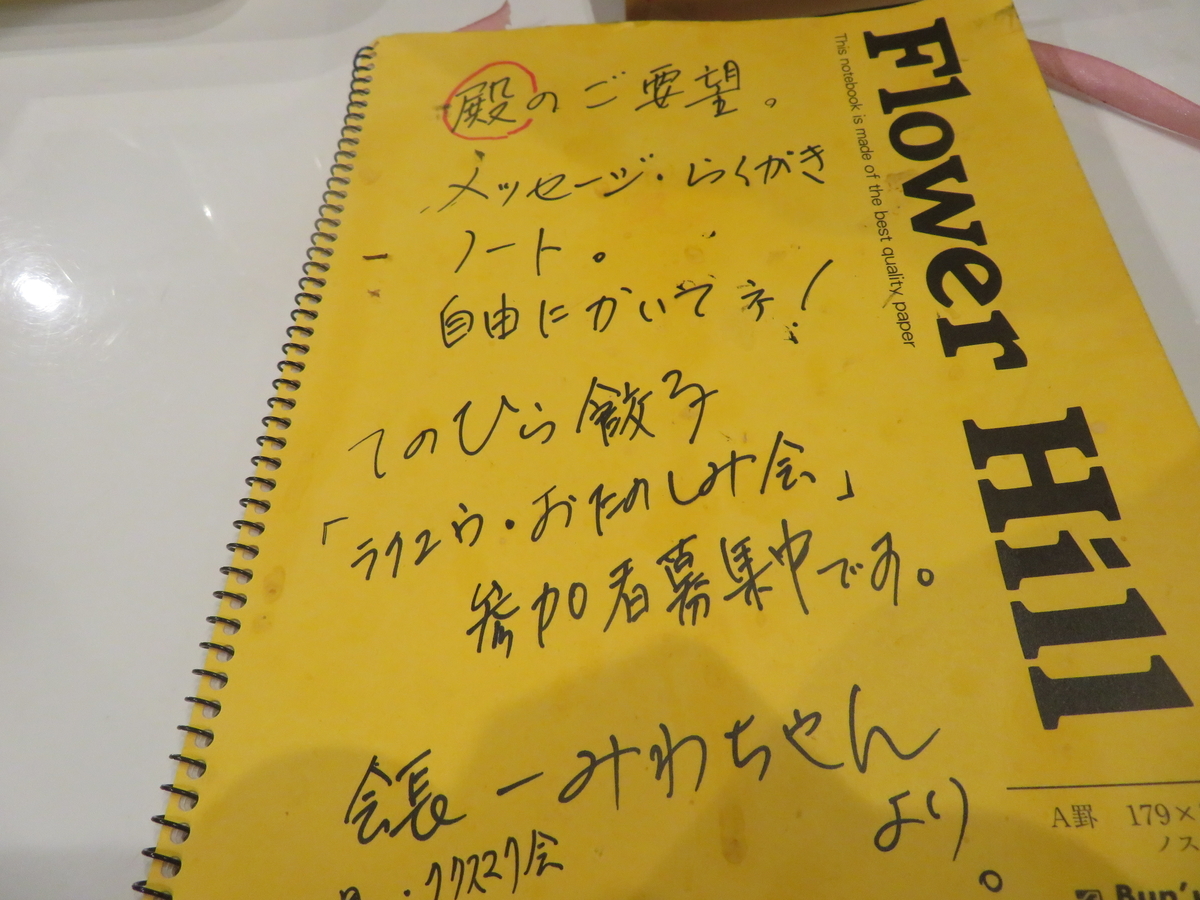 殿のご要望。
メッセージ・らくがき
ノート。
自由にかいてネ!
てのひら餃子
「ラクエウ・おたのしみ会」
参加者募集中です。
会長ーみわちゃん
より。
Flower Hill
This notebook is made of the best quality paper
A罫 179×
ノス
Bun'